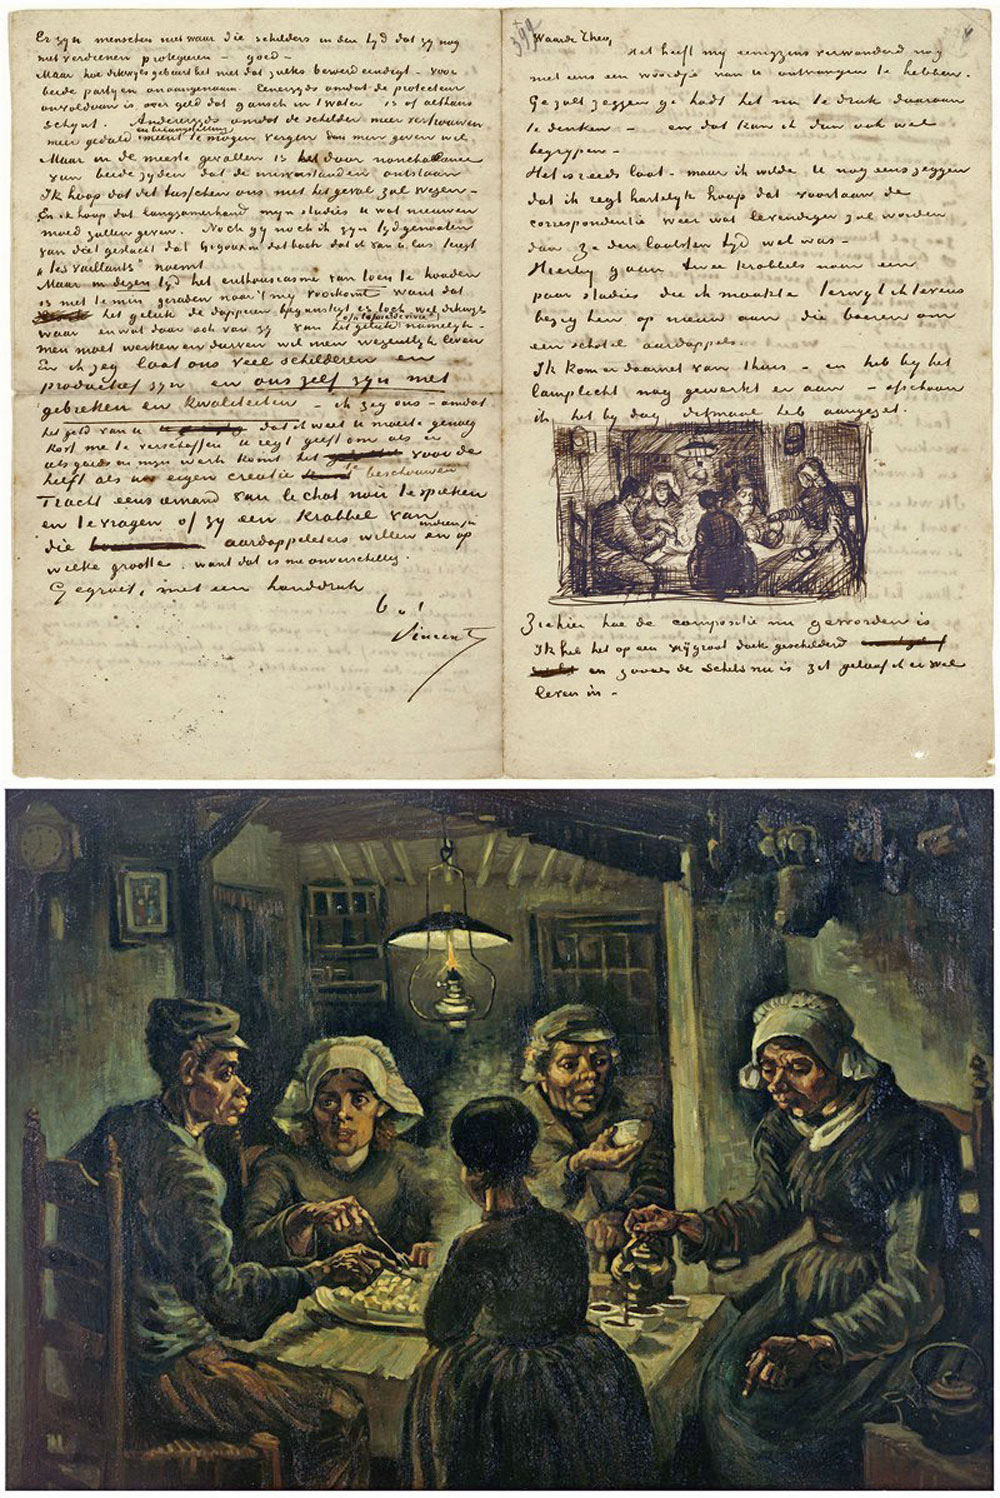 Er zyn menschen niet waar die schilders in den tyd dat zy nog
niet verdienen protegeeren – goed –
Maar hoe dikwyls gebeurt het niet dat zulks beroerd eindigt – voor
beide partyen onaangenaam. Eenerzyds omdat de protecteur
onvoldaan is over geld dat gansch in 't water is of althans
schynt. Anderzyds omdat de schilder meer vertrouwen
en belangstelling
meer geduld meent te mogen vergen dan men geven wil
Maar in de meeste gevallen is het door nonchalance
van beide zyden dat de misverstanden ontstaan
Ik hoop dat dit tusschen ons niet het geval zal wezen –
En ik hoop dat langzamerhand myn studies u wat nieuwen
moed zullen geven. Noch gy noch ik zyn tydgenooten
van dat geslacht dat Gigoux in dat boek dat ik van u las teregt
„les vaillants" noemt
Maar in dezen tyd het enthousiasme van toen te houden
is niet te min geraden naar 't my voorkomt want dat
het geluk de dapperen begunstigt is toch wel dikwyls
waar en wat daar ook van zy van het geluk namelyk –
men moet werken en durven wil men wezenlyk leven
En ik zeg laat ons veel schilderen en
productief zyn en ons zelf zyn met
gebreken en kwaliteiten – ik zeg ons – omdat
het geld van u dat ik weet u moeite genoeg
kost me te verschaffen u regt geeft om als er
iets goeds in myn werk komt het voor de
helft als uw eigen creatie te beschouwen
Tracht eens iemand van le chat noir te spreken
en te vragen of zy een krabbel van
die aardappeleters willen en op
indien ja
welke grootte. want dat is me onverschillig.
Gegroet, met een handdruk
t. à t.
Vincent
Waarde Theo,
Het heeft my eenigzins verwonderd nog
niet eens een woordje van u ontvangen te hebben.
Ge zult zeggen ge hadt het nu te druk daaraan
te denken – en dat kan ik dan ook wel
begrypen –
Het is reeds laat – maar ik wilde u nog eens zeggen
dat ik regt hartelyk hoop dat voortaan de
correspondentie weer wat levendiger zal worden
dan ze den laatsten tyd wel was –
Hierby gaan twee krabbels naar een
paar studies die ik maakte terwyl ik tevens
bezig ben op nieuw aan die boeren om
een schotel aardappels.
Ik kom er daarnet van thuis – en heb by het
lamplicht nog gewerkt er aan – ofschoon
ik het by dag ditmaal heb aangezet.
Ziehier hoe de compositie nu geworden is
Ik heb het op een vrij groot doek geschilderd
en zooals de schets nu is zit geloof ik er wel
leven in –